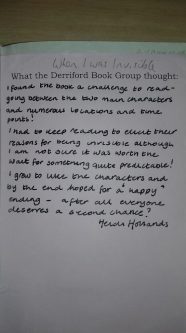 When I was Invisible
What the Derriford Book Group thought:
I found the book a challenge to read-
going between the two main characters
and numerous locations and time
points!
I had to keep reading to elicit their
reasons for being invisible although
I am not sure it was worth the
wait for something quite predictable!
I grew to like the characters and
by the end hoped for a "happy"
ending - after all everyone
deserves a second chance?